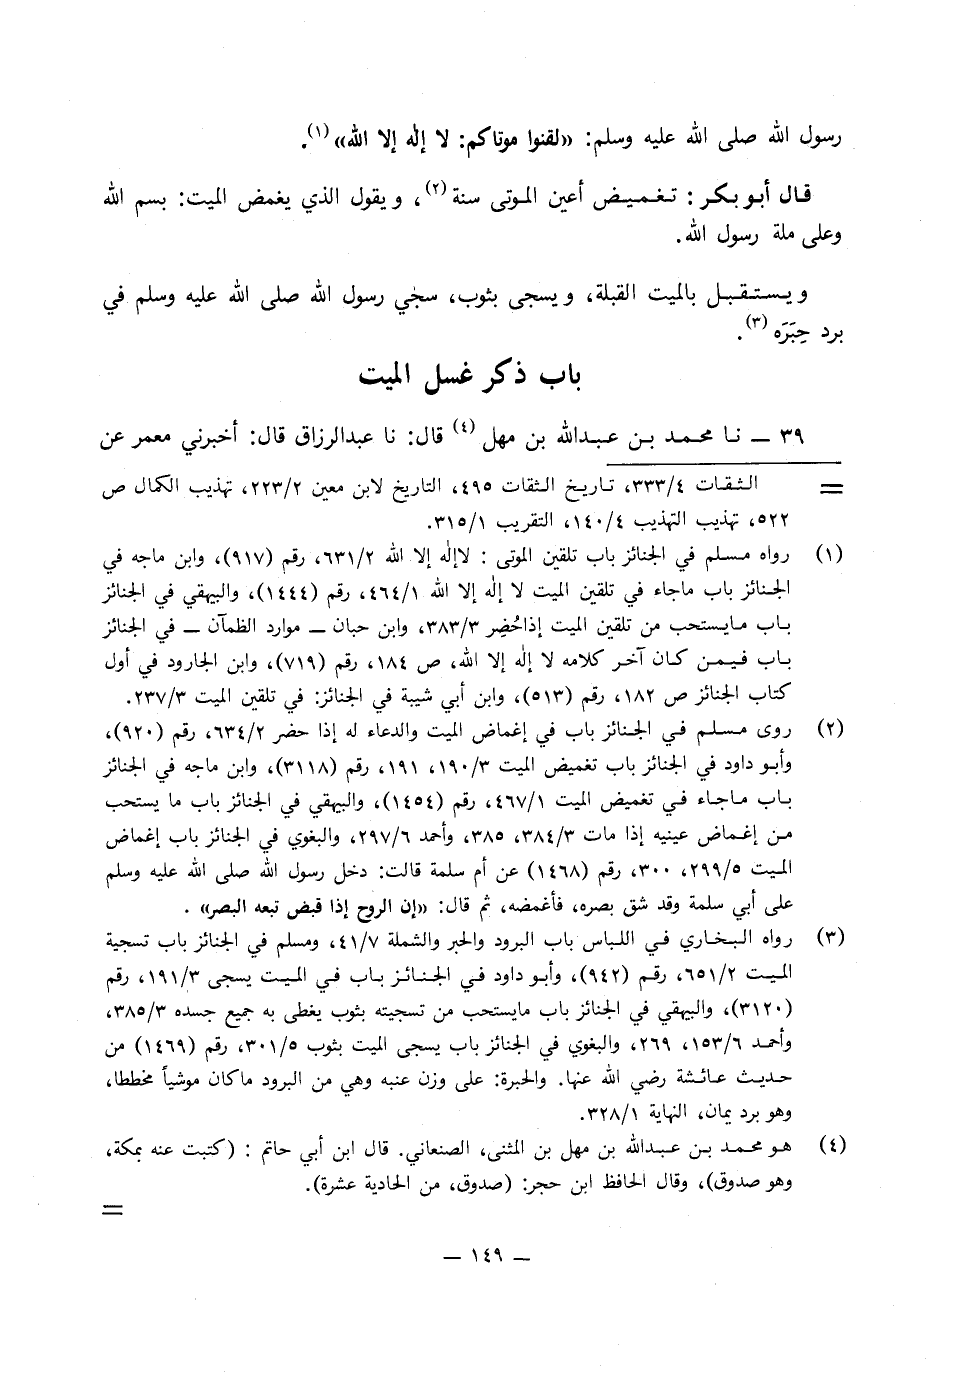 رسول الله صلى الله عليه وسلم: «لقنوا موتاكم: لا إله إلا الله» (١).
قال أبو بكر: تغميض أعين الموتى سنة (٢)، ويقول الذي يغمض الميت: بسم الله
وعلى ملة رسول الله.
ويستقبل بالميت القبلة، ويسجى بثوب، سجي رسول الله صلى الله عليه وسلم في
برد حِبَرَه (٣).
باب ذكر غسل الميت
٣٩ ــ نا محمد بن عبدالله بن مهل (٤) قال: نا عبدالرزاق قال: أخبرني معمر عن
= الثقات ٣٣٣/٤، تاريخ الثقات ٤٩٥، التاريخ لابن معين ٢٢٣/٢، تهذيب الكمال ص
٥٢٢، تهذيب التهذيب ١٤٠/٤، التقريب ٣١٥/١.
(١) رواه مسلم في الجنائز باب تلقين الموتى : لاإله إلا الله ٦٣١/٢، رقم (٩١٧)، وابن ماجه في
الجنائز باب ماجاء في تلقين الميت لا إله إلا الله ٤٦٤/١، رقم (١٤٤٤)، والبيهقي في الجنائز
باب مايستحب من تلقين الميت إذاحُضِر ٣٨٣/٣، وابن حبان ــ موارد الظمآن ــ في الجنائز
باب فيمن كان آخر كلامه لا إله إلا الله، ص ١٨٤، رقم (٧١٩)، وابن الجارود في أول
كتاب الجنائز ص ١٨٢، رقم (٥١٣)، وابن أبي شيبة في الجنائز: في تلقين الميت ٢٣٧/٣.
(٢) روى مسلم في الجنائز باب في إغماض الميت والدعاء له إذا حضر ٦٣٤/٢، رقم (٩٢٠)،
وأبو داود في الجنائز باب تغميض الميت ١٩٠/٣، ١٩١، رقم (٣١١٨)، وابن ماجه في الجنائز
باب ماجاء في تغميض الميت ٤٦٧/١، رقم (١٤٥٤)، والبيهقي في الجنائز باب ما يستحب
من إغماض عينيه إذا مات ٣٨٤/٣، ٣٨٥، وأحمد ٢٩٧/٦، والبغوي في الجنائز باب إغماض
الميت ٢٩٩/٥، ٣٠٠، رقم (١٤٦٨) عن أم سلمة قالت: دخل رسول الله صلى الله عليه وسلم
على أبي سلمة وقد شق بصره، فأغمضه، ثم قال: «إن الروح إذا قبض تبعه البصر» .
(٣) رواه البخاري في اللباس باب البرود والحبر والشملة ٤١/٧، ومسلم في الجنائز باب تسجية
الميت ٦٥١/٢، رقم (٩٤٢)، وأبو داود في الجنائز باب في الميت يسجى ١٩١/٣، رقم
(٣١٢٠)، والبيهقي في الجنائز باب مايستحب من تسجيته بثوب يغطى به جميع جسده ٣٨٥/٣،
وأحمد ١٥٣/٦، ٢٦٩، والبغوي في الجنائز باب يسجى الميت بثوب ٣٠١/٥، رقم (١٤٦٩) من
حديث عائشة رضي الله عنها. والحبرة: على وزن عنبه وهي من البرود ماكان موشياً مخططا،
وهو برد يمان، النهاية ٣٢٨/١.
(٤) هو محمد بن عبدالله بن مهل بن المثنى، الصنعاني. قال ابن أبي حاتم : (كتبت عنه بمكة،
وهو صدوق)، وقال الحافظ ابن حجر: (صدوق، من الحادية عشرة).
=
ــ ١٤٩ ــ